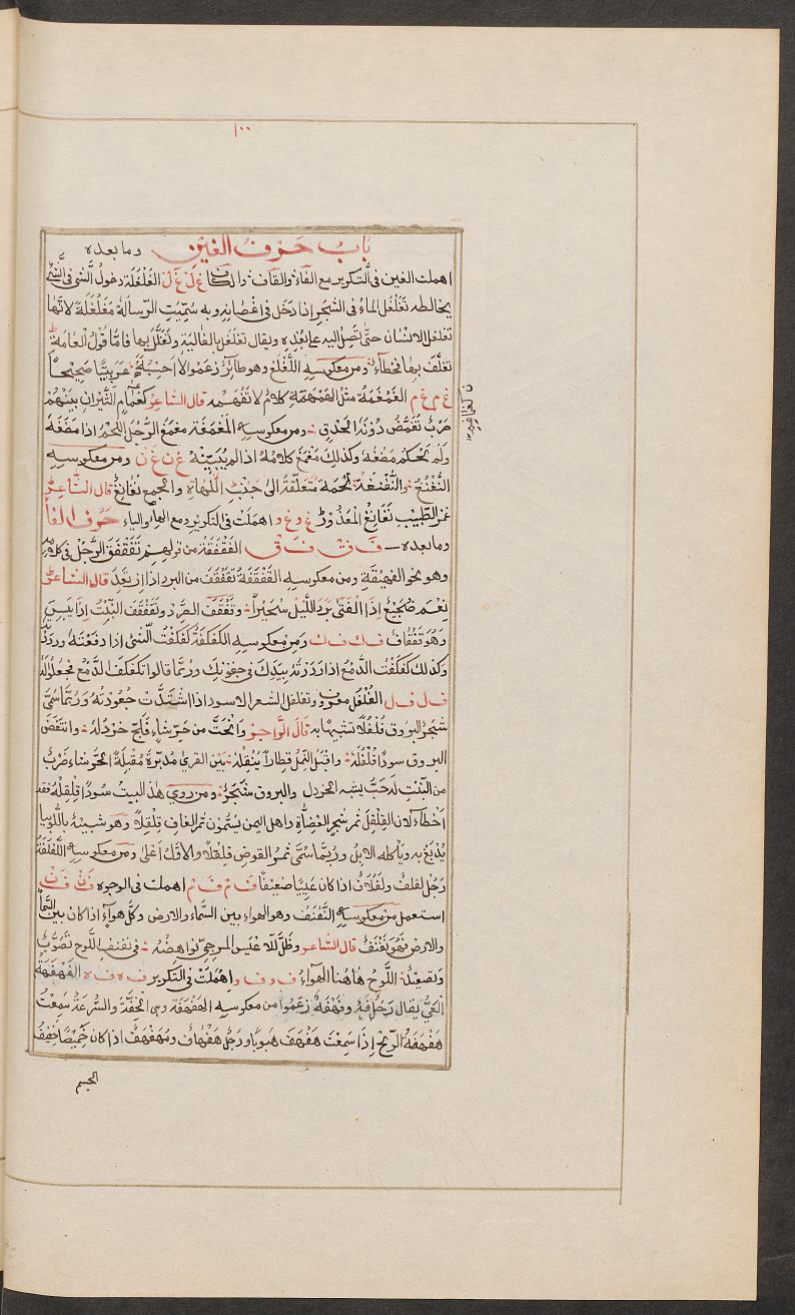 ١٠٠
باب حرف الغين وما بعده
اهملت الغين في التكوير مع الفاء والقاف والكاف غ ل غ ل الغلغلة دخول الشي في الشي
يخالطه تغلغل الماء في الشجر اذا دخل في اغصانه وبه سميت الرسالة مغلغلة لانها
تغلغل الانسان حتى تصل اليه على بعده ويقال تغلغل بالغالية وتغلل بها فاما قول العامة
تغلف بها فخطأ ومن معكوسه اللغلغ وهو طائر زعموا لا احسبه عربيا صحيحا
غ م غ م الغمغمة مثل الهمهمة كلام لا تفهمه قال الشاعر كغمام الثيران بينهم
ضرب تغمض دونه الحدق ومن معكوسه المغمغة مغمغ الرجل اللحم اذا مضغه
ولم يحكم مضغه وكذلك مغمغ كلامه اذا لم يبينه غ ن غ ن ومن معكوسه
النغنغ والنغنغة لحمة متعلقة الى جنب اللهاة والجمع نغانغ قال الشاعر
غمز الطبيب نغانغ المعذور غ و غ و اهملت في التكوير ومع الهاء والياء حرف الفا
وما بعده ف ق ف ق الفقفقة من قولهم تفقفق الرجل في كلامه
وهو نحو الفيهقة ومن معكوسه القفقفة تقفقف من البرد اذا ارتعد قال الشاعر
نعم ضجيع الفتى اذا برد الليل سحيرا وتقفقف الصرد وتقفقف النبت اذا يبس
وهو تقفاف ف ك ف ك ومن معكوسه الكفكفة كفكفت الشئ اذا دفعته ورددته
وكذلك كفكفت الدمع اذا رددته بيدك في جفونك وربما قالوا تكفكف الدمع فجعلوا له
ف ل ف ل الفلفل معروف وتفلفل الشعر الاسود اذا اشتدت جعودته وربما سمي
شجر البروق فلفلا تشبيها به قال الراجز وانحت من حرشاء فلج خردله وانتفض
البروق سودا فلفله واقبل النمل قطارا ينقله بين القرى مدبرة مقبلة الحرشاء ضرب
من النبت له حب يشبه الخردل والبروق شجر ومن روي هذا البيت سودا قلقله فقد
اخطأ لان القلقل ثمر شجر العضاه واهل اليمن يسمون ثمر الغاف قلقلا وهو شبيه باللوبيا
يدبغ به وياكله الابل وربما سمي ثمر القوض فلفلا والاول اعلى ومن معكوسه اللفلفة
رجل لفلف ولفلاف اذا كان عييا ضعيفا ف م ف م اهملت في الوجوه ف ن ف ن
استعمل من معكوسه النفنف وهو الهواء بين السماء والارض وكل هواء اذا كان بين السما
والارض فهو نفنف قال الشاعر وظل للاعيس المزجي نواهضه في نفنف اللوح تصويب
وتصعيد اللوح هاهنا الهواء ف و ف و اهملت في التكوير ف ه ف ه الفهفهة
العي يقال رجل فه وفهفه زعموا من معكوسه الهفهفة وهي الخفة والسرعة سمعت
هفهفة الريح اذا سمعت هفهف هبوبها ورجل هفهاف ومهفهف اذا كان خميصا خفيف
الجسم